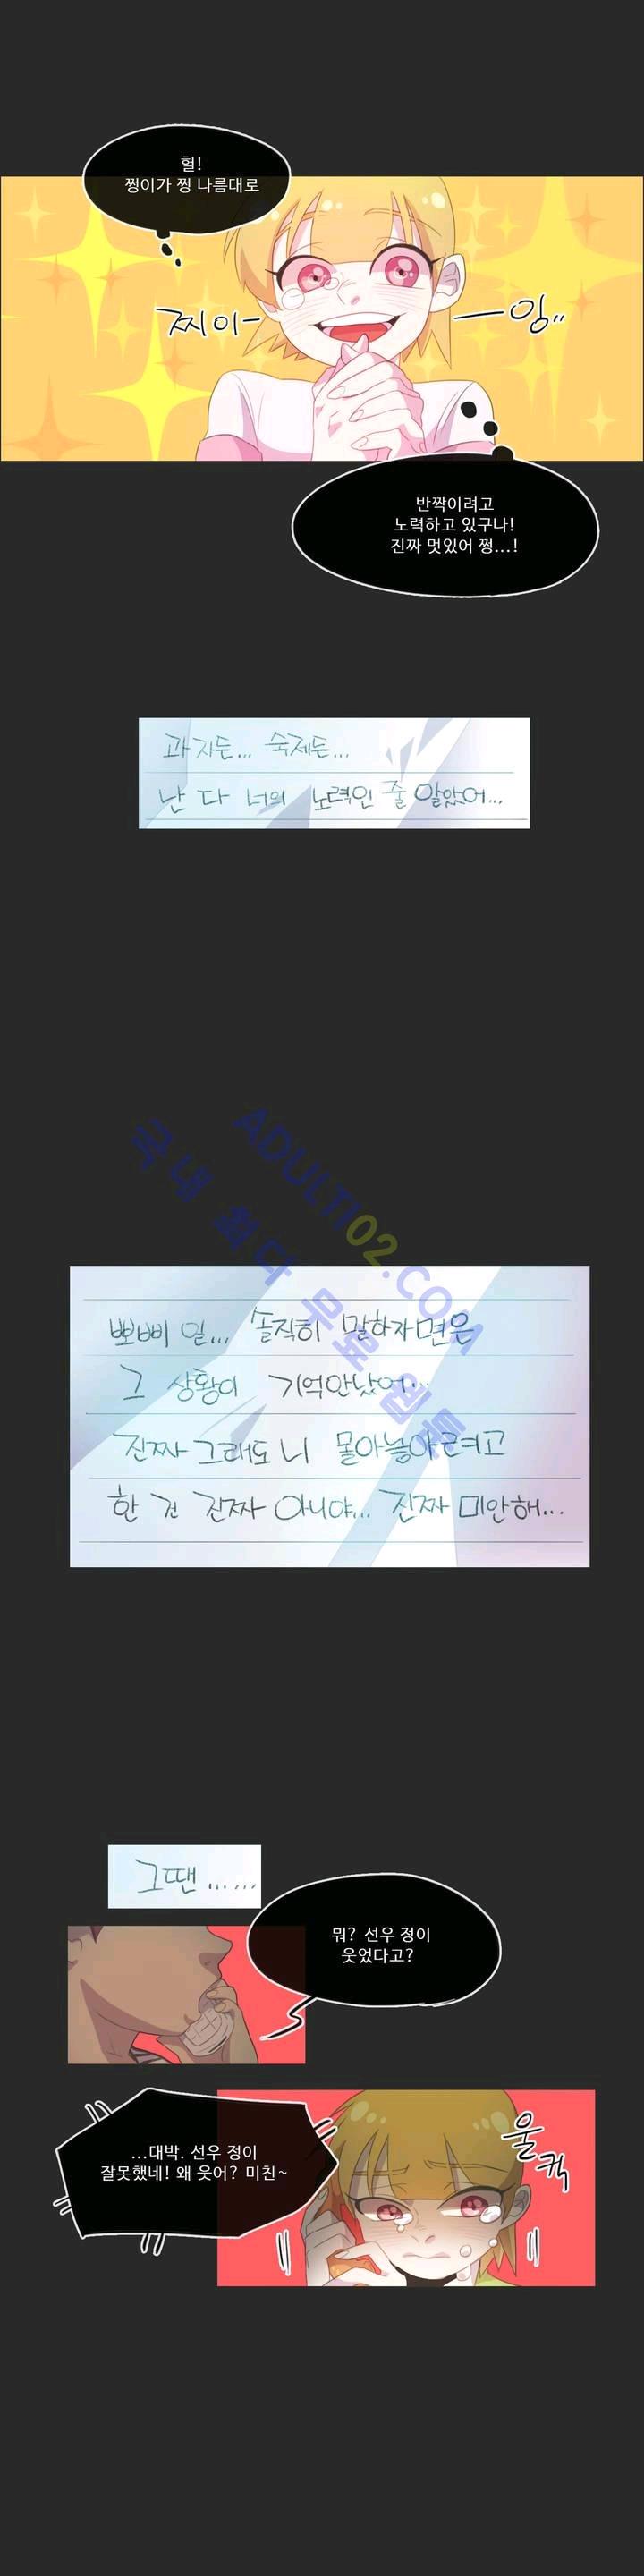 헐!
쩡이가 쩡 나름대로
찌이-
―잉..
반짝이려고
노력하고 있구나!
진짜 멋있어 쩡...!
과자든... 숙제든...
난 다 너의 노력인 줄 알았어...
ADULT102.COM
국내 최다 무료 웹툰
뽀삐 일... 솔직히 말하자면은
그 상황이 기억안났어...
진짜 그래도 니 몰아놓아르려고
한 건 진짜 아니야... 진짜 미안해...
그땐......
뭐? 선우 정이
웃었다고?
...대박. 선우 정이
잘못했네! 왜 웃어? 미친~
울컥